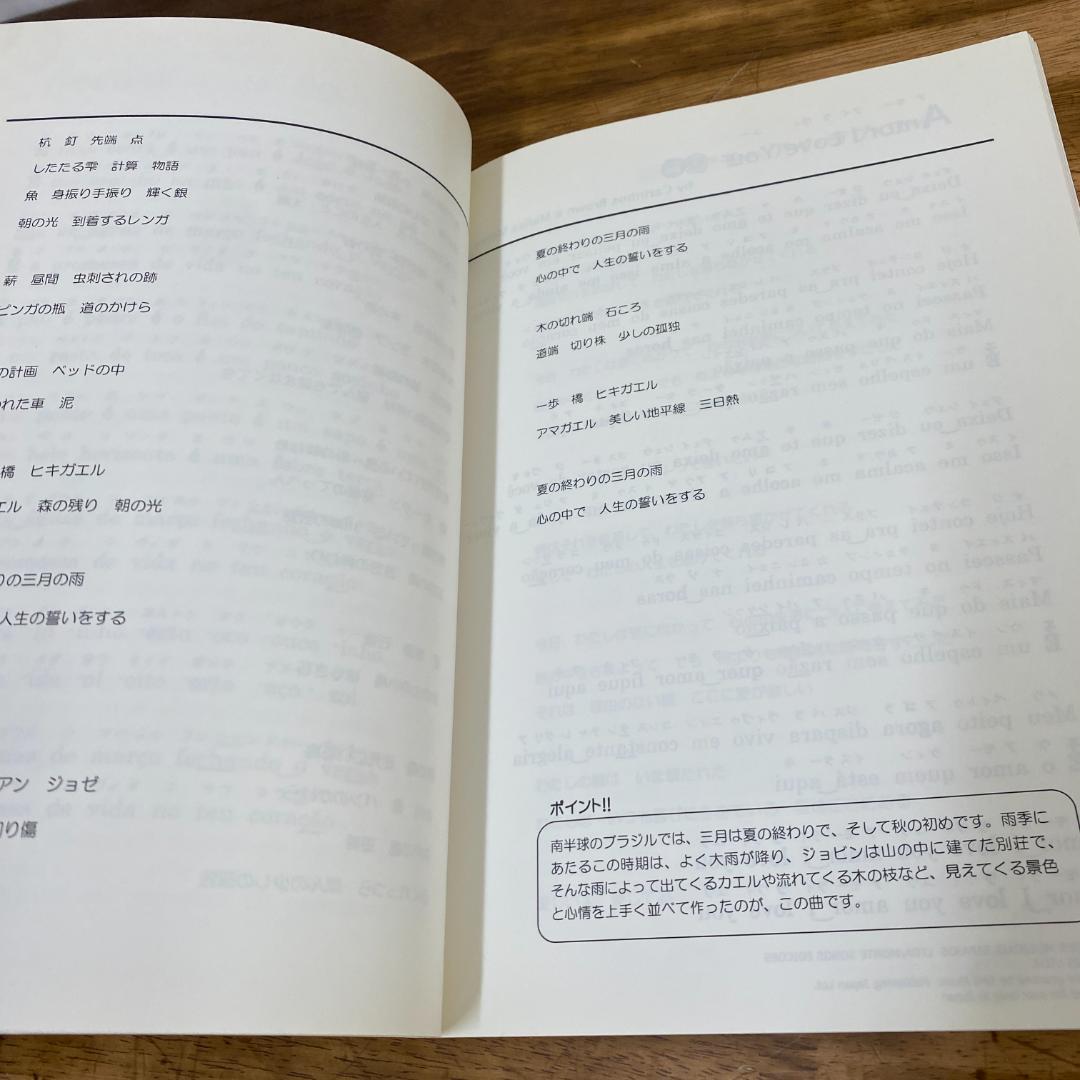 杭 釘 先端 点
したたる雫 計算 物語
魚 身振り手振り 輝く銀
朝の光 到着するレンガ
薪 昼間 虫刺されの跡
ピンガの瓶 道のかけら
の計画 ベッドの中
れた車 泥
橋 ヒキガエル
エル 森の残り 朝の光
りの三月の雨
人生の誓いをする
アン ジョゼ
切り傷
夏の終わりの三月の雨
心の中で 人生の誓いをする
木の切れ端 石ころ
道端 切り株 少しの孤独
一歩 橋 ヒキガエル
アマガエル 美しい地平線 三日熱
夏の終わりの三月の雨
心の中で 人生の誓いをする
ポイント!!
南半球のブラジルでは、三月は夏の終わりで、そして秋の初めです。雨季に
あたるこの時期は、よく大雨が降り、ジョビンは山の中に建てた別荘で、
そんな雨によって出てくるカエルや流れてくる木の枝など、見えてくる景色
と心情を上手く並べて作ったのが、この曲です。